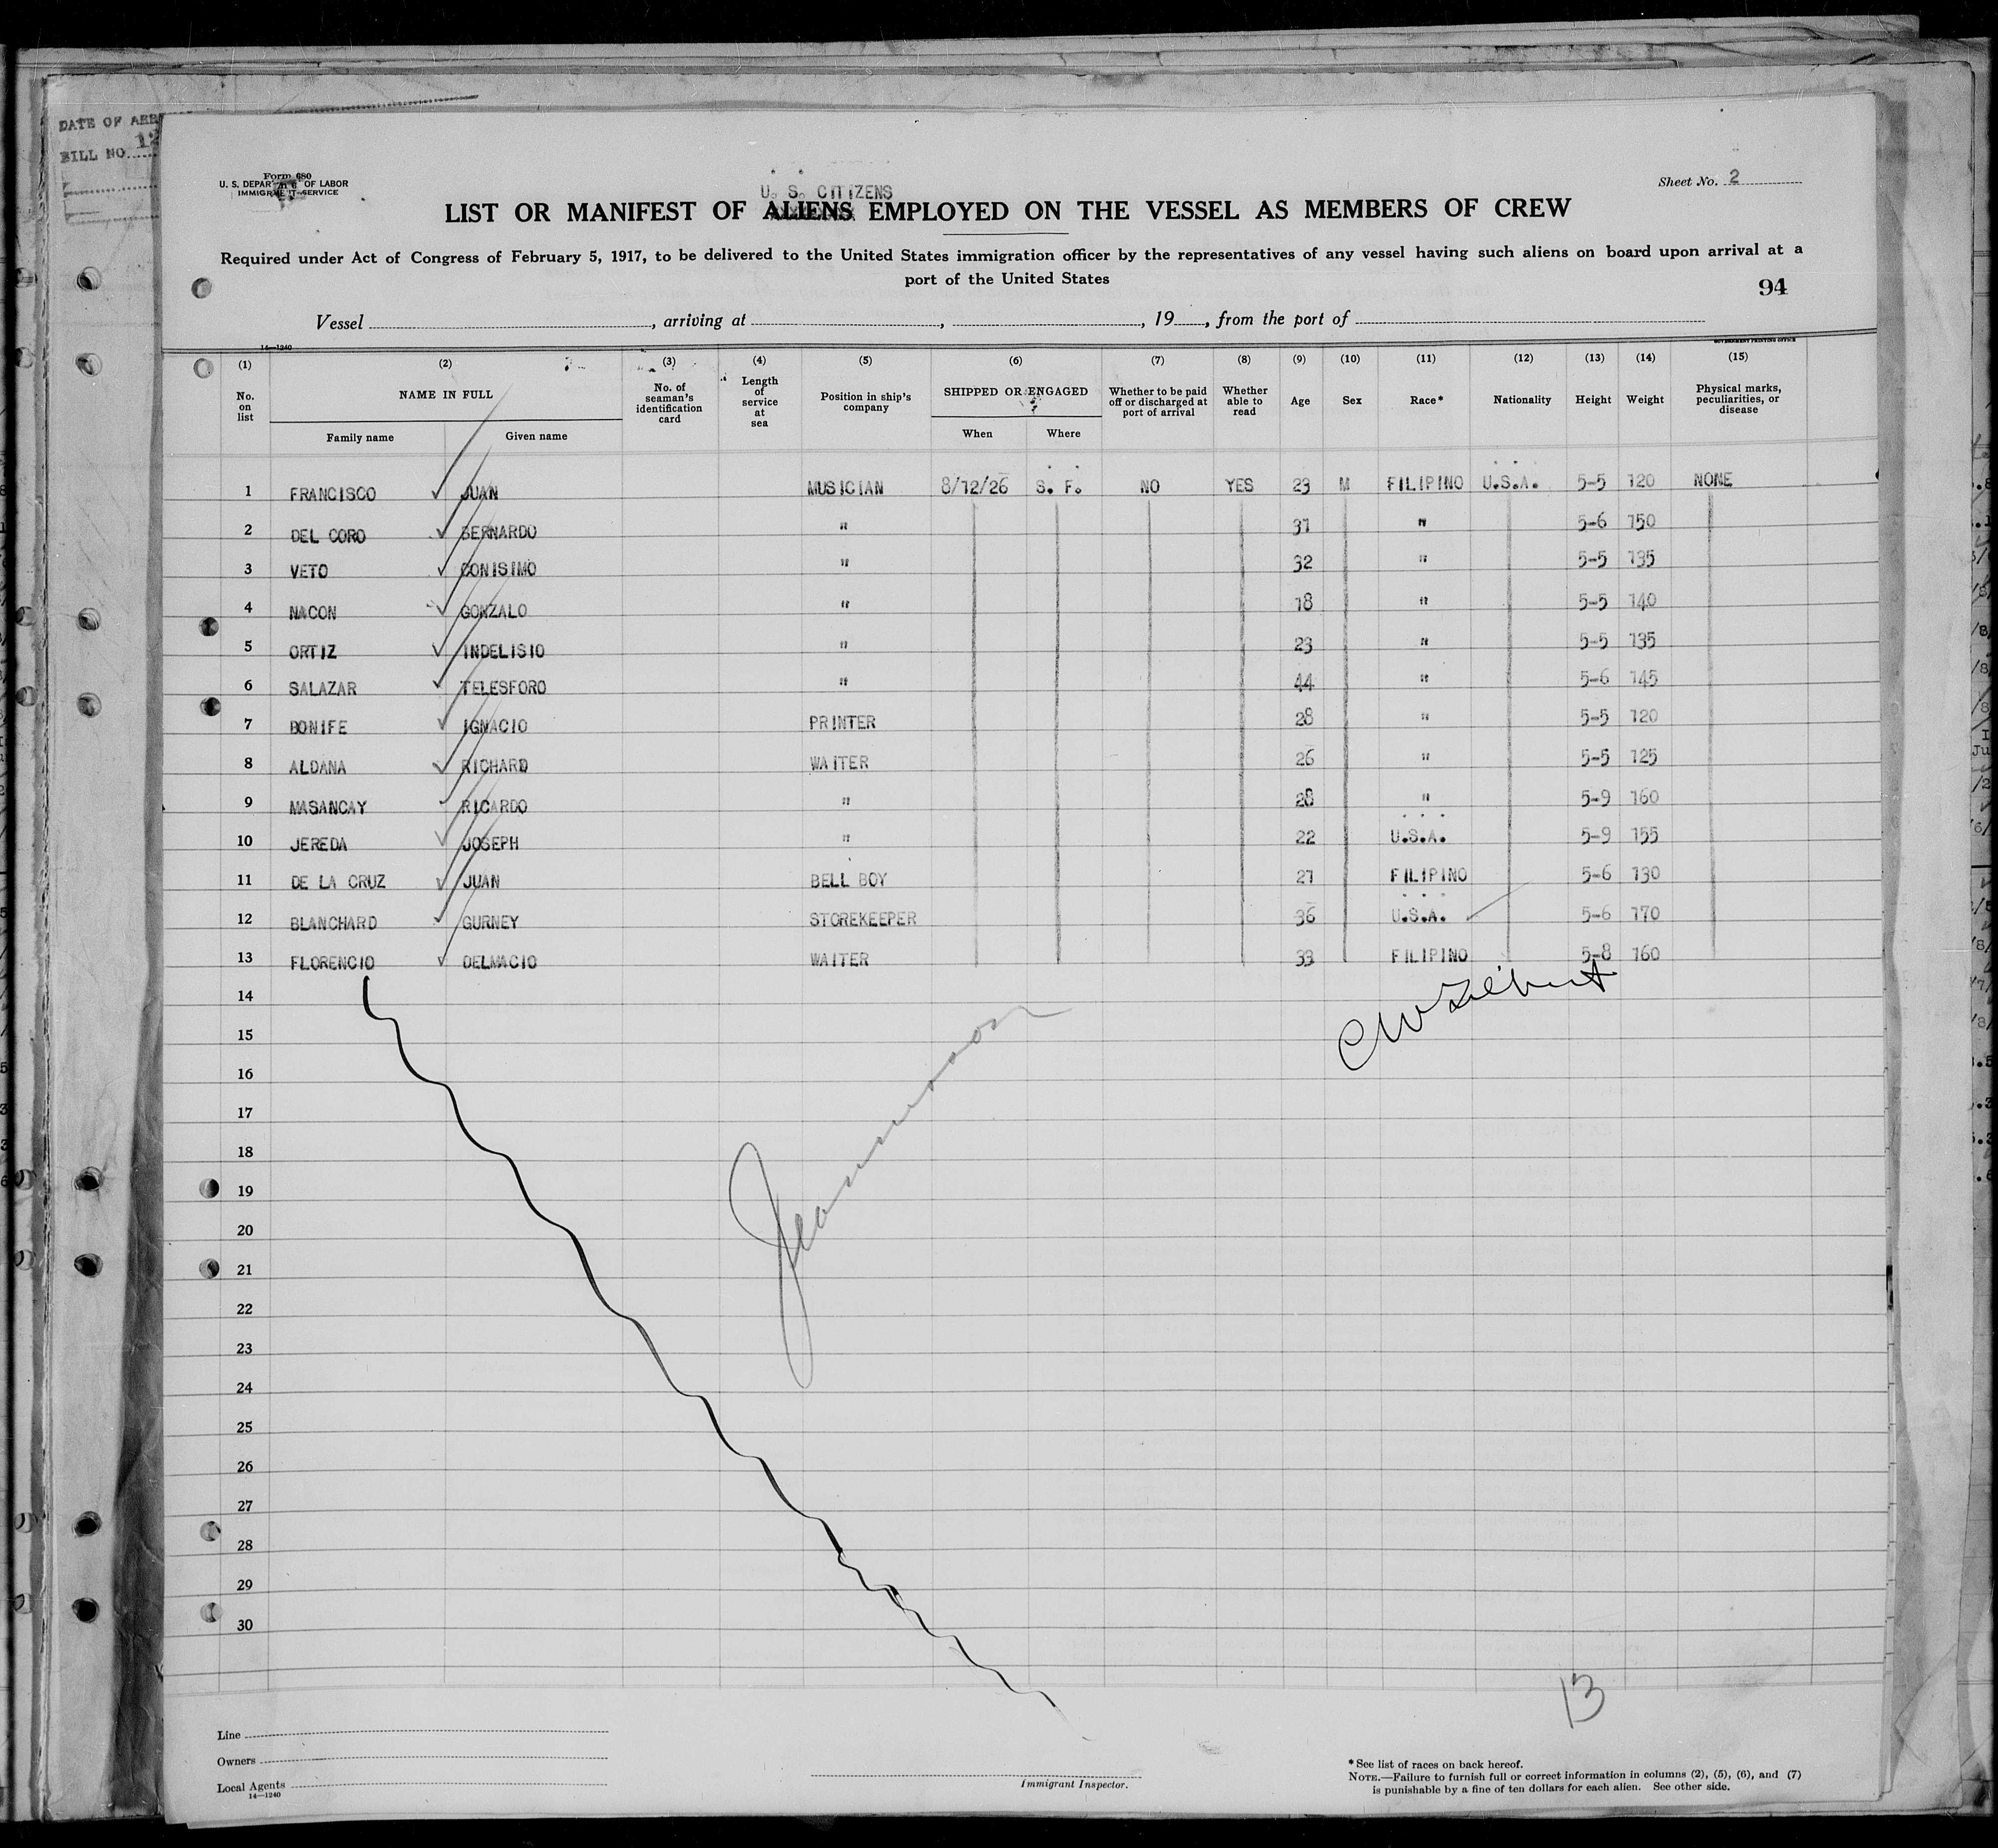 DATE OF ARR
BILL NO. 12
Form 680
U. S. DEPAR OF LABOR
IMMIGR SERVICE
Sheet No. 2
U. S. CITIZENS
LIST OR MANIFEST OF ALIENS EMPLOYED ON THE VESSEL AS MEMBERS OF CREW
Required under Act of Congress of February 5, 1917, to be delivered to the United States immigration officer by the representatives of any vessel having such aliens on board upon arrival at a
port of the United States
94
Vessel , arriving at , , 19 , from the port of
14—1240 GOVERNMENT PRINTING OFFICE
(1) (2) (3) (4) (5) (6) (7) (8) (9) (10) (11) (12) (13) (14) (15)
No. on list NAME IN FULL No. of seaman's identification card Length of service at sea Position in ship's company SHIPPED OR ENGAGED Whether to be paid off or discharged at port of arrival Whether able to read Age Sex Race* Nationality Height Weight Physical marks, peculiarities, or disease
Family name Given name When Where
1 FRANCISCO JUAN MUSICIAN 8/12/26 S. F. NO YES 23 M FILIPINO U.S.A. 5-5 120 NONE
2 DEL CORO BERNARDO " 31 " 5-6 150
3 VETO CONISIMO " 32 " 5-5 135
4 NACON GONZALO " 18 " 5-5 140
5 ORTIZ INDELISIO " 23 " 5-5 135
6 SALAZAR TELESFORO " 44 " 5-6 145
7 BONIFE IGNACIO PRINTER 28 " 5-5 120
8 ALDANA RICHARD WAITER 26 " 5-5 125
9 MASANCAY RICARDO " 28 " 5-9 160
10 JEREDA JOSEPH " 22 U.S.A. 5-9 155
11 DE LA CRUZ JUAN BELL BOY 21 FILIPINO 5-6 130
12 BLANCHARD GURNEY STOREKEEPER 36 U.S.A. 5-6 170
13 FLORENCIO DELMACIO WAITER 33 FILIPINO 5-8 160
14
15
16
17
18
19
20
21
22
23
24
25
26
27
28
29
30
13
Line
Owners
Local Agents
14—1240
Immigrant Inspector.
*See list of races on back hereof.
NOTE.—Failure to furnish full or correct information in columns (2), (5), (6), and (7)
is punishable by a fine of ten dollars for each alien. See other side.